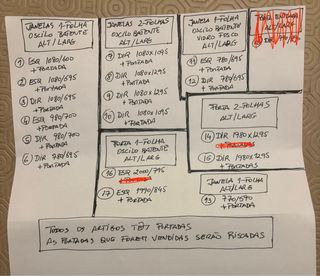 JANELAS 1-FOLHA
OSCILO BATENTE
ALT/LARG
① ESQ 1080/600
+ PORTADA
② ESQ 1080/695
+ PORTADA
③ DIR 1080/695
+ PORTADA
④ ESQ 980/700
+ PORTADA
⑤ DIR 980/700
+ PORTADA
⑥ DIR 780/695
+ PORTADA
JANELAS 2-FOLHAS
OSCILO BATENTE
ALT/LARG
⑦ DIR 1080x1095
+ PORTADA
⑧ DIR 1080x1295
+ PORTADA
⑨ DIR 1080x1295
+ PORTADA
⑩ DIR 1080x1095
+ PORTADA
PORTA 1-FOLHA
OSCILO BATENTE
ALT/LARG
⑯ ESQ 2000/795
+ PORTADA
⑰ ESQ 1990/845
+ PORTADA
JANELA 1-FOLHA
OSCILO BATENTE
VIDRO FOSCO
ALT/LARG
⑪ ESQ 780/695
+ PORTADA
⑫ DIR 780/695
+ PORTADA
PORTA 2-FOLHAS
ALT/LARG
⑭ DIR 1980x1295
+ PORTADA
⑮ DIR 1980x1295
+ PORTADAS
JANELA 1-FOLHA
ALT/LARG
⑬ 770/570
+ PORTADA
TODOS OS ARTIGOS TÊM PORTADAS
AS PORTADAS QUE FOREM VENDIDAS SERÃO RISCADAS